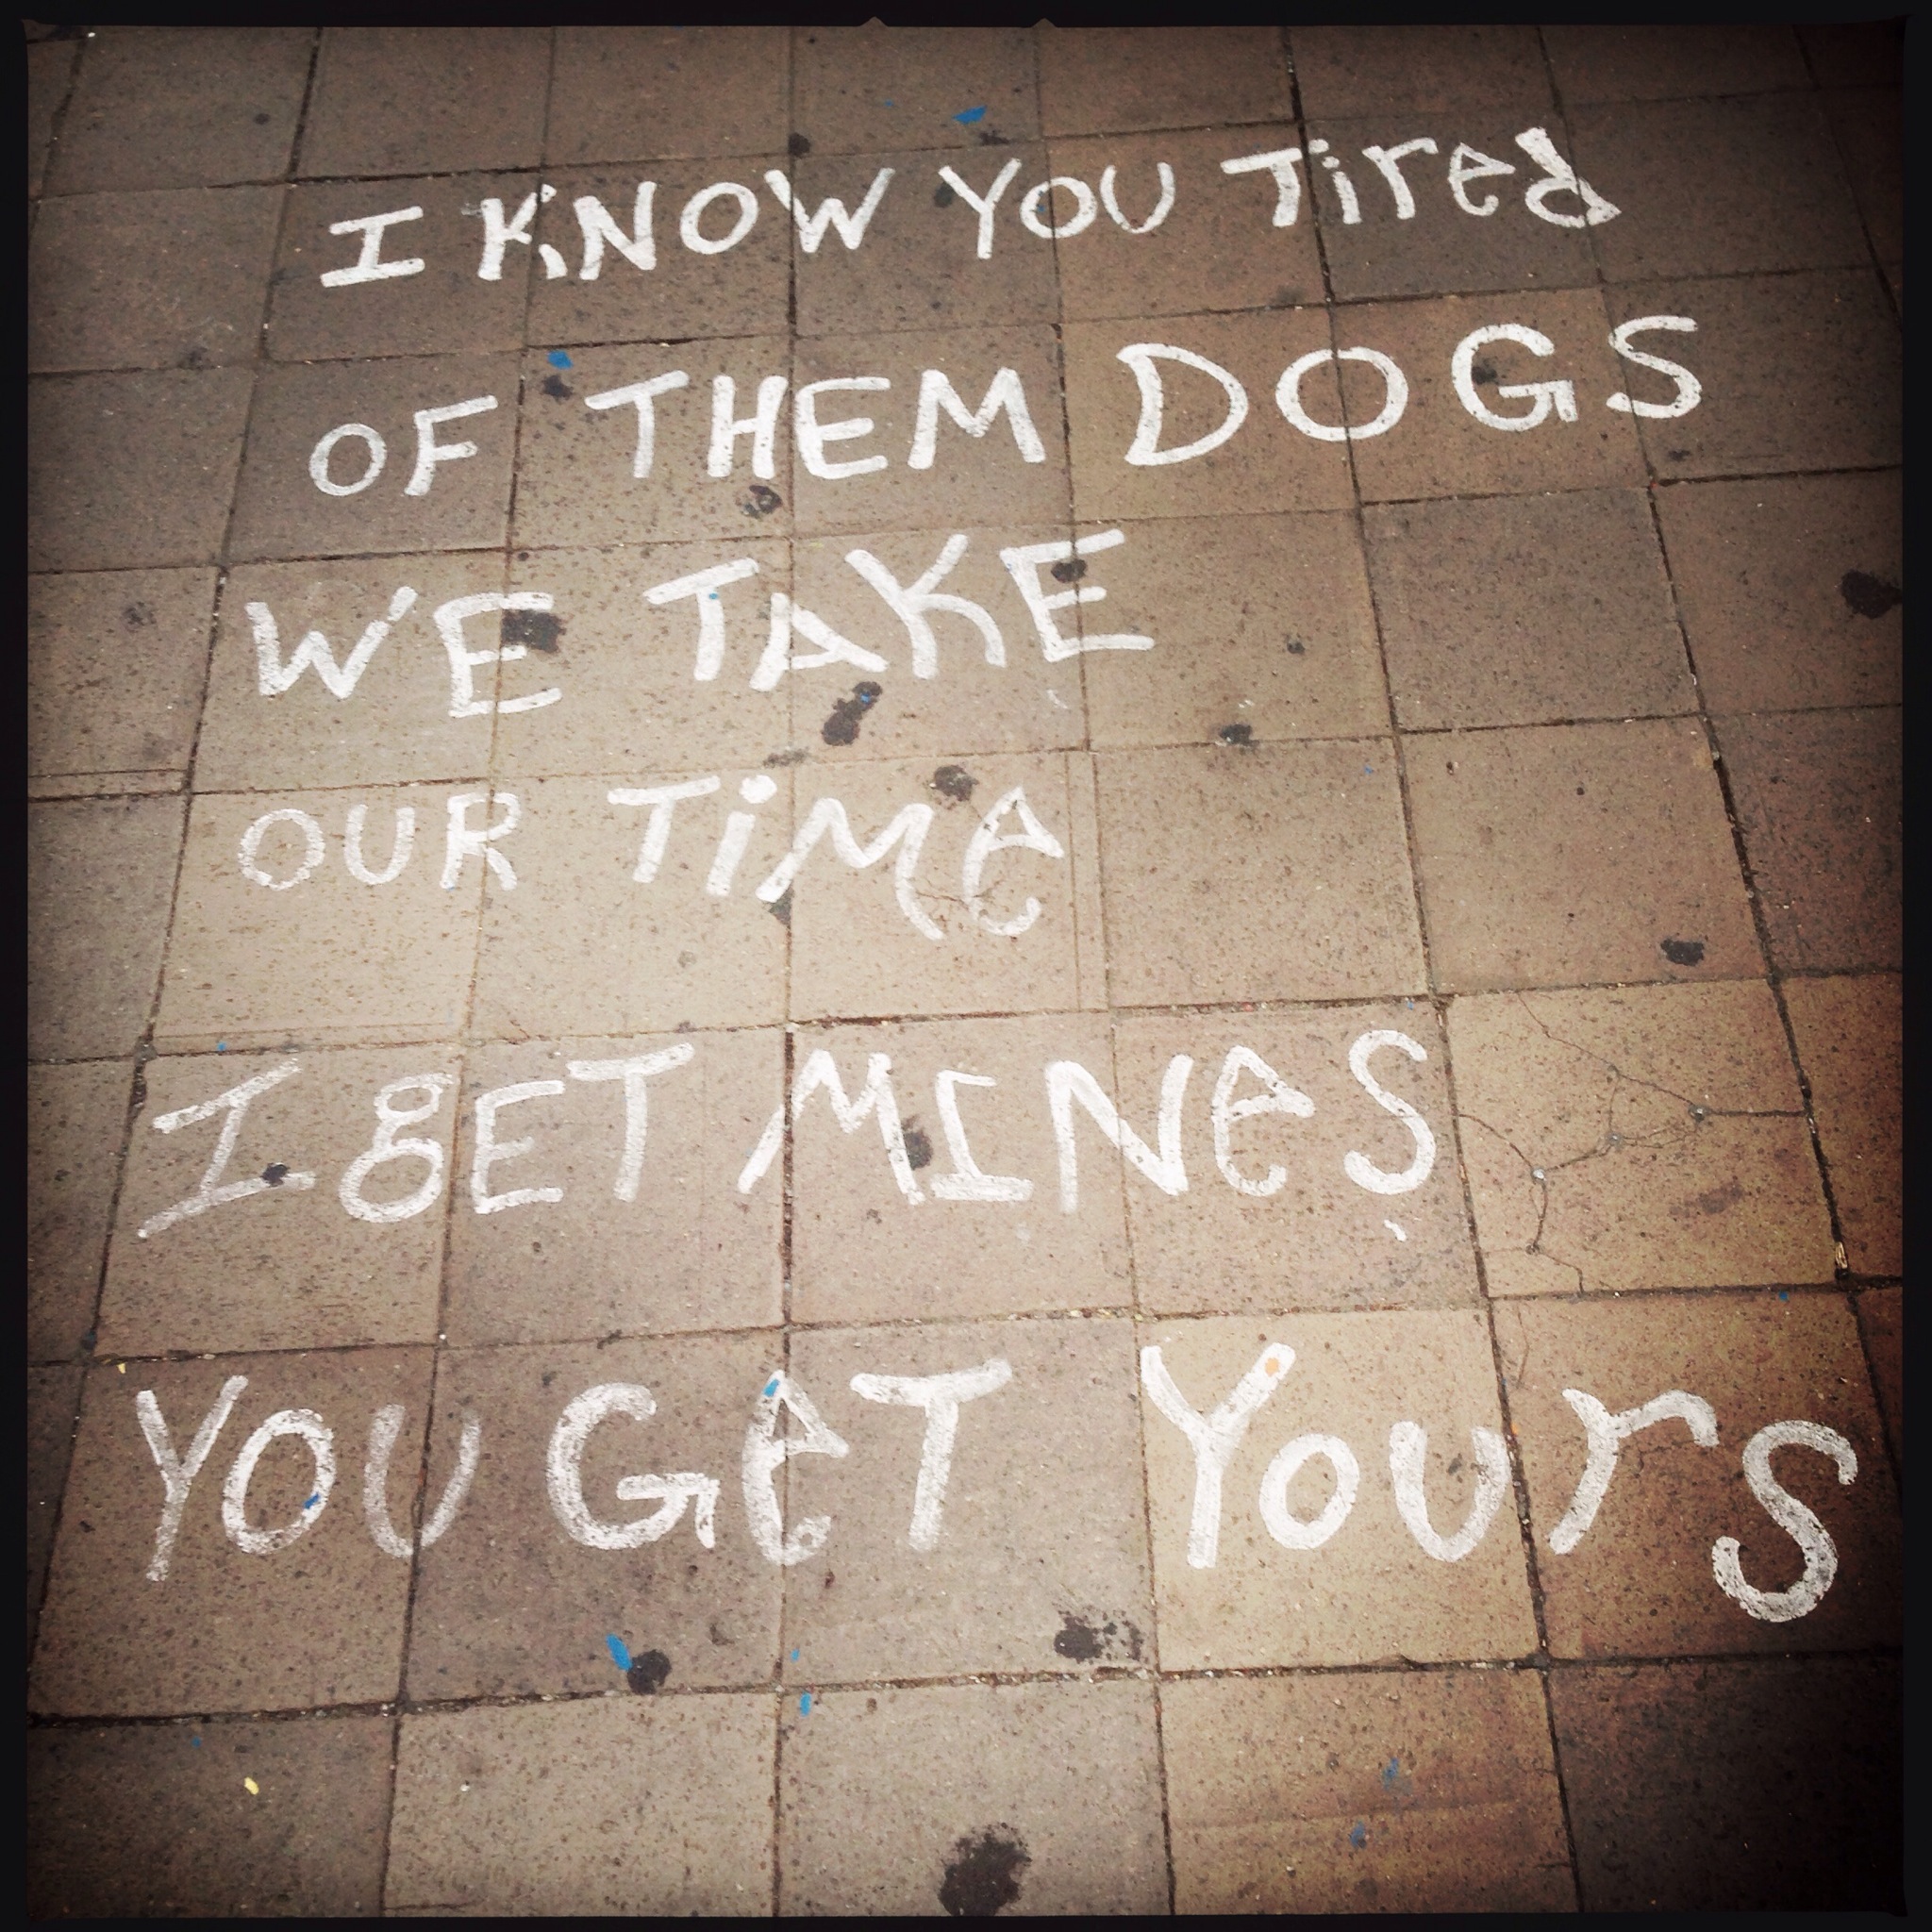 I KNOW YOU Tired
OF THEM DOGS
WE TAKE
OUR TiMe
I gET MINeS
YOU GeT YourS